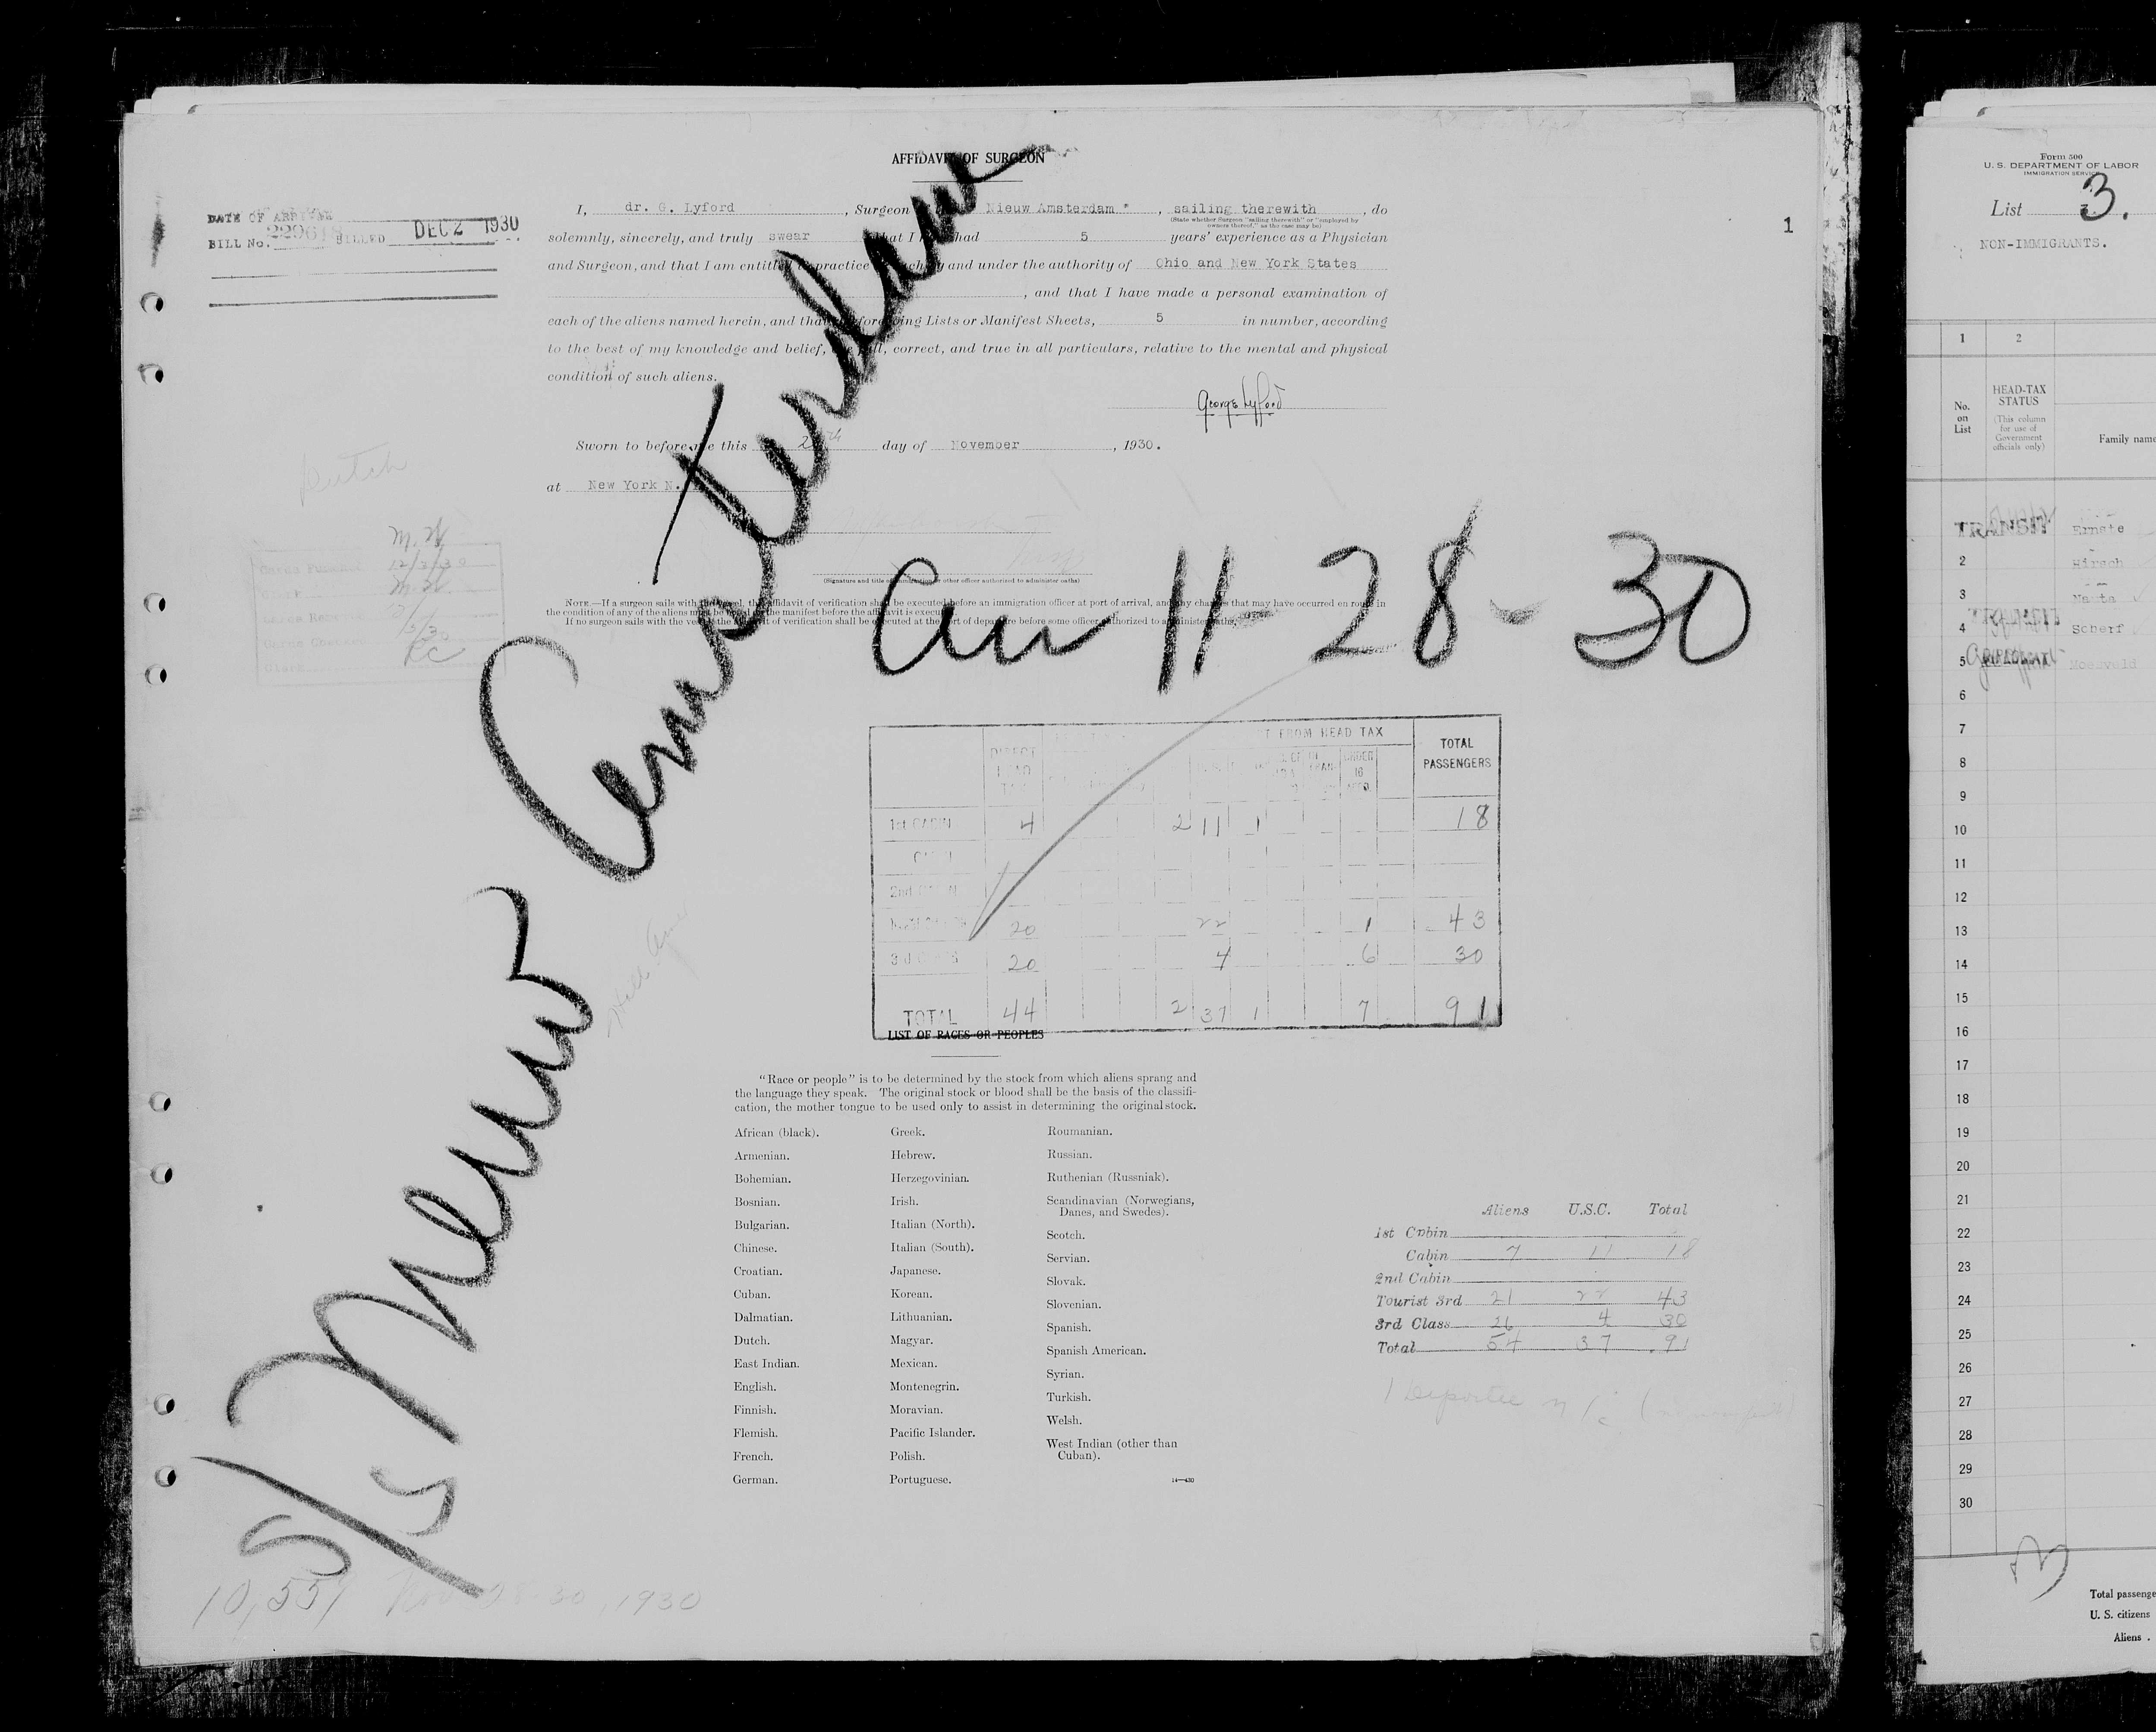 AFFIDAVIT OF SURGEON
DATE OF ARRIVAL
BILL No. 229618 BILLED DEC 2 1930
I, dr. G. Lyford, Surgeon Nieuw Amsterdam", sailing therewith, do
(State whether Surgeon "sailing therewith" or "employed by
owners thereof," as the case may be)
solemnly, sincerely, and truly swear that I have had 5 years' experience as a Physician
and Surgeon, and that I am entitled to practice as such by and under the authority of Ohio and New York States
, and that I have made a personal examination of
each of the aliens named herein, and that the foregoing Lists or Manifest Sheets, 5 in number, according
to the best of my knowledge and belief, are full, correct, and true in all particulars, relative to the mental and physical
condition of such aliens.
George Lyford
Sworn to before me this 28th day of November, 1930.
at New York N.
(Signature and title of immigration or other officer authorized to administer oaths)
NOTE.—If a surgeon sails with the vessel, the affidavit of verification shall be executed before an immigration officer at port of arrival, and any changes that may have occurred en route in
the condition of any of the aliens must be noted on the manifest before the affidavit is executed.
If no surgeon sails with the vessel the affidavit of verification shall be executed at the port of departure before some officer authorized to administer oaths.
1
Dutch
M.H
12/3/30
M.H
S/S Nieuw Amsterdam
Arr 11-28-30
FROM HEAD TAX
DIRECT HEAD TAX
UNDER 16
TOTAL PASSENGERS
1st CABIN 4 2 11 1 18
CABIN
2nd CABIN
20 22 1 43
3rd CLASS 20 4 6 30
TOTAL 44 2 37 1 7 91
LIST OF RACES OR PEOPLES
"Race or people" is to be determined by the stock from which aliens sprang and
the language they speak. The original stock or blood shall be the basis of the classifi-
cation, the mother tongue to be used only to assist in determining the original stock.
African (black).
Armenian.
Bohemian.
Bosnian.
Bulgarian.
Chinese.
Croatian.
Cuban.
Dalmatian.
Dutch.
East Indian.
English.
Finnish.
Flemish.
French.
German.
Greek.
Hebrew.
Herzegovinian.
Irish.
Italian (North).
Italian (South).
Japanese.
Korean.
Lithuanian.
Magyar.
Mexican.
Montenegrin.
Moravian.
Pacific Islander.
Polish.
Portuguese.
Roumanian.
Russian.
Ruthenian (Russniak).
Scandinavian (Norwegians,
Danes, and Swedes).
Scotch.
Servian.
Slovak.
Slovenian.
Spanish.
Spanish American.
Syrian.
Turkish.
Welsh.
West Indian (other than
Cuban).
14—430
Aliens U.S.C. Total
1st Cabin
Cabin 7 11 18
2nd Cabin
Tourist 3rd 21 22 43
3rd Class 26 4 30
Total 54 37 91
1 Deportee
10,557 Nov 28-30, 1930
Form 500
U. S. DEPARTMENT OF LABOR
IMMIGRATION SERVICE
List 3.
NON-IMMIGRANTS.
1 2
No.
on
List
HEAD-TAX
STATUS
(This column
for use of
Government
officials only)
Family name
TRANSIT Ernste
2 Hirsch
3 Nauta
4 Scherf
5
6
7
8
9
10
11
12
13
14
15
16
17
18
19
20
21
22
23
24
25
26
27
28
29
30
3
Total passenge
U. S. citizens
Aliens .